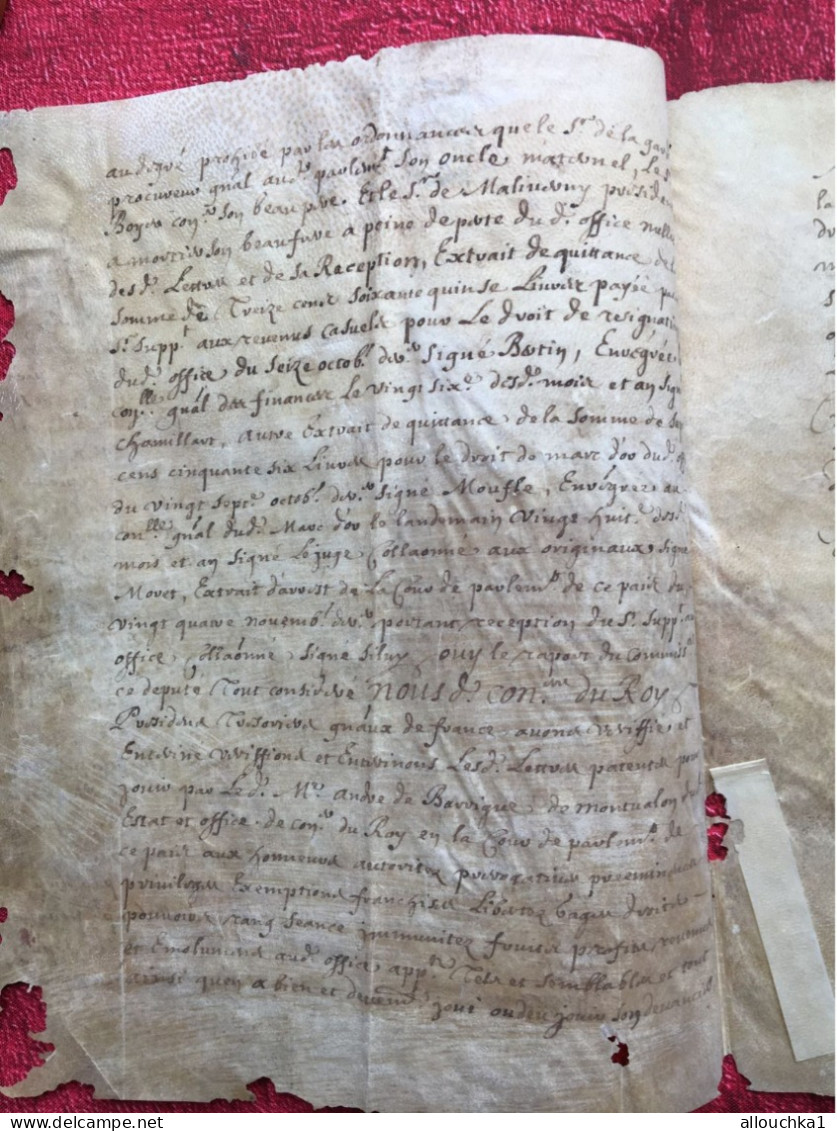 au degré prohibé par les ordonnances que le Sr. de la gar
procureur gñal aud. parlemt. son oncle maternel, le Sr.
Boyer conr. son beau pere. Et le Sr. de Malinerny presiden
a mortier son beaufrere a peine de perte du d. office nullité
desd. Lettres et de sa Reception, Extrait de quittance de la
somme de Treize cens soixante quinse Livres payée par
Sr. suppt. aux revenus casuels pour Le droit de resignati
dud. office du seize octob. der. signé Bertin, Enregrée
conlle. gñal des finances le vingt sixe. desd. mois et an signé
Chamillart, autre Extrait de quittance de la somme de
cens cinquante six Livres pour le droit de marc d'or dud. off
du vingt septe. octob. der. signé Moufle, Enregrée au
conlle. gñal dud. Marc d'or le landemain vingt huit. desd.
mois et an signé Lejuge Collaõnné aux originaux signé
Moret, Extrait d'arrest de La Cour de parlemt. de ce pais du
vingt quatre novemb. der. portant reception du Sr. Suppt. au
office Collaõnné signé Silvy ouy le raport du Commissre.
ce deputé Tout consideré Nous d. Coners. du Roy
Presidens Tresoriers gñaux de france avons veriffié et
Enteriné veriffions et Enterinons Lesd. Lettres patentes pour
jouir par Led. Mr. andré de Barrigue de montvalon dud.
Estat et office de conr. du Roy en la Cour de parlemt. de
ce pais aux honneurs autoritez prerogatives preeminences
privileges Exemptions franchises Libertez gages droits
pouvoirs rang seance immunitez fruits profits revenus
et Emolumens aud. office appts. Tels et semblables et tout
ainsi quen a bien et deuemt. joui ou deu jouir son devancier
allouchka1